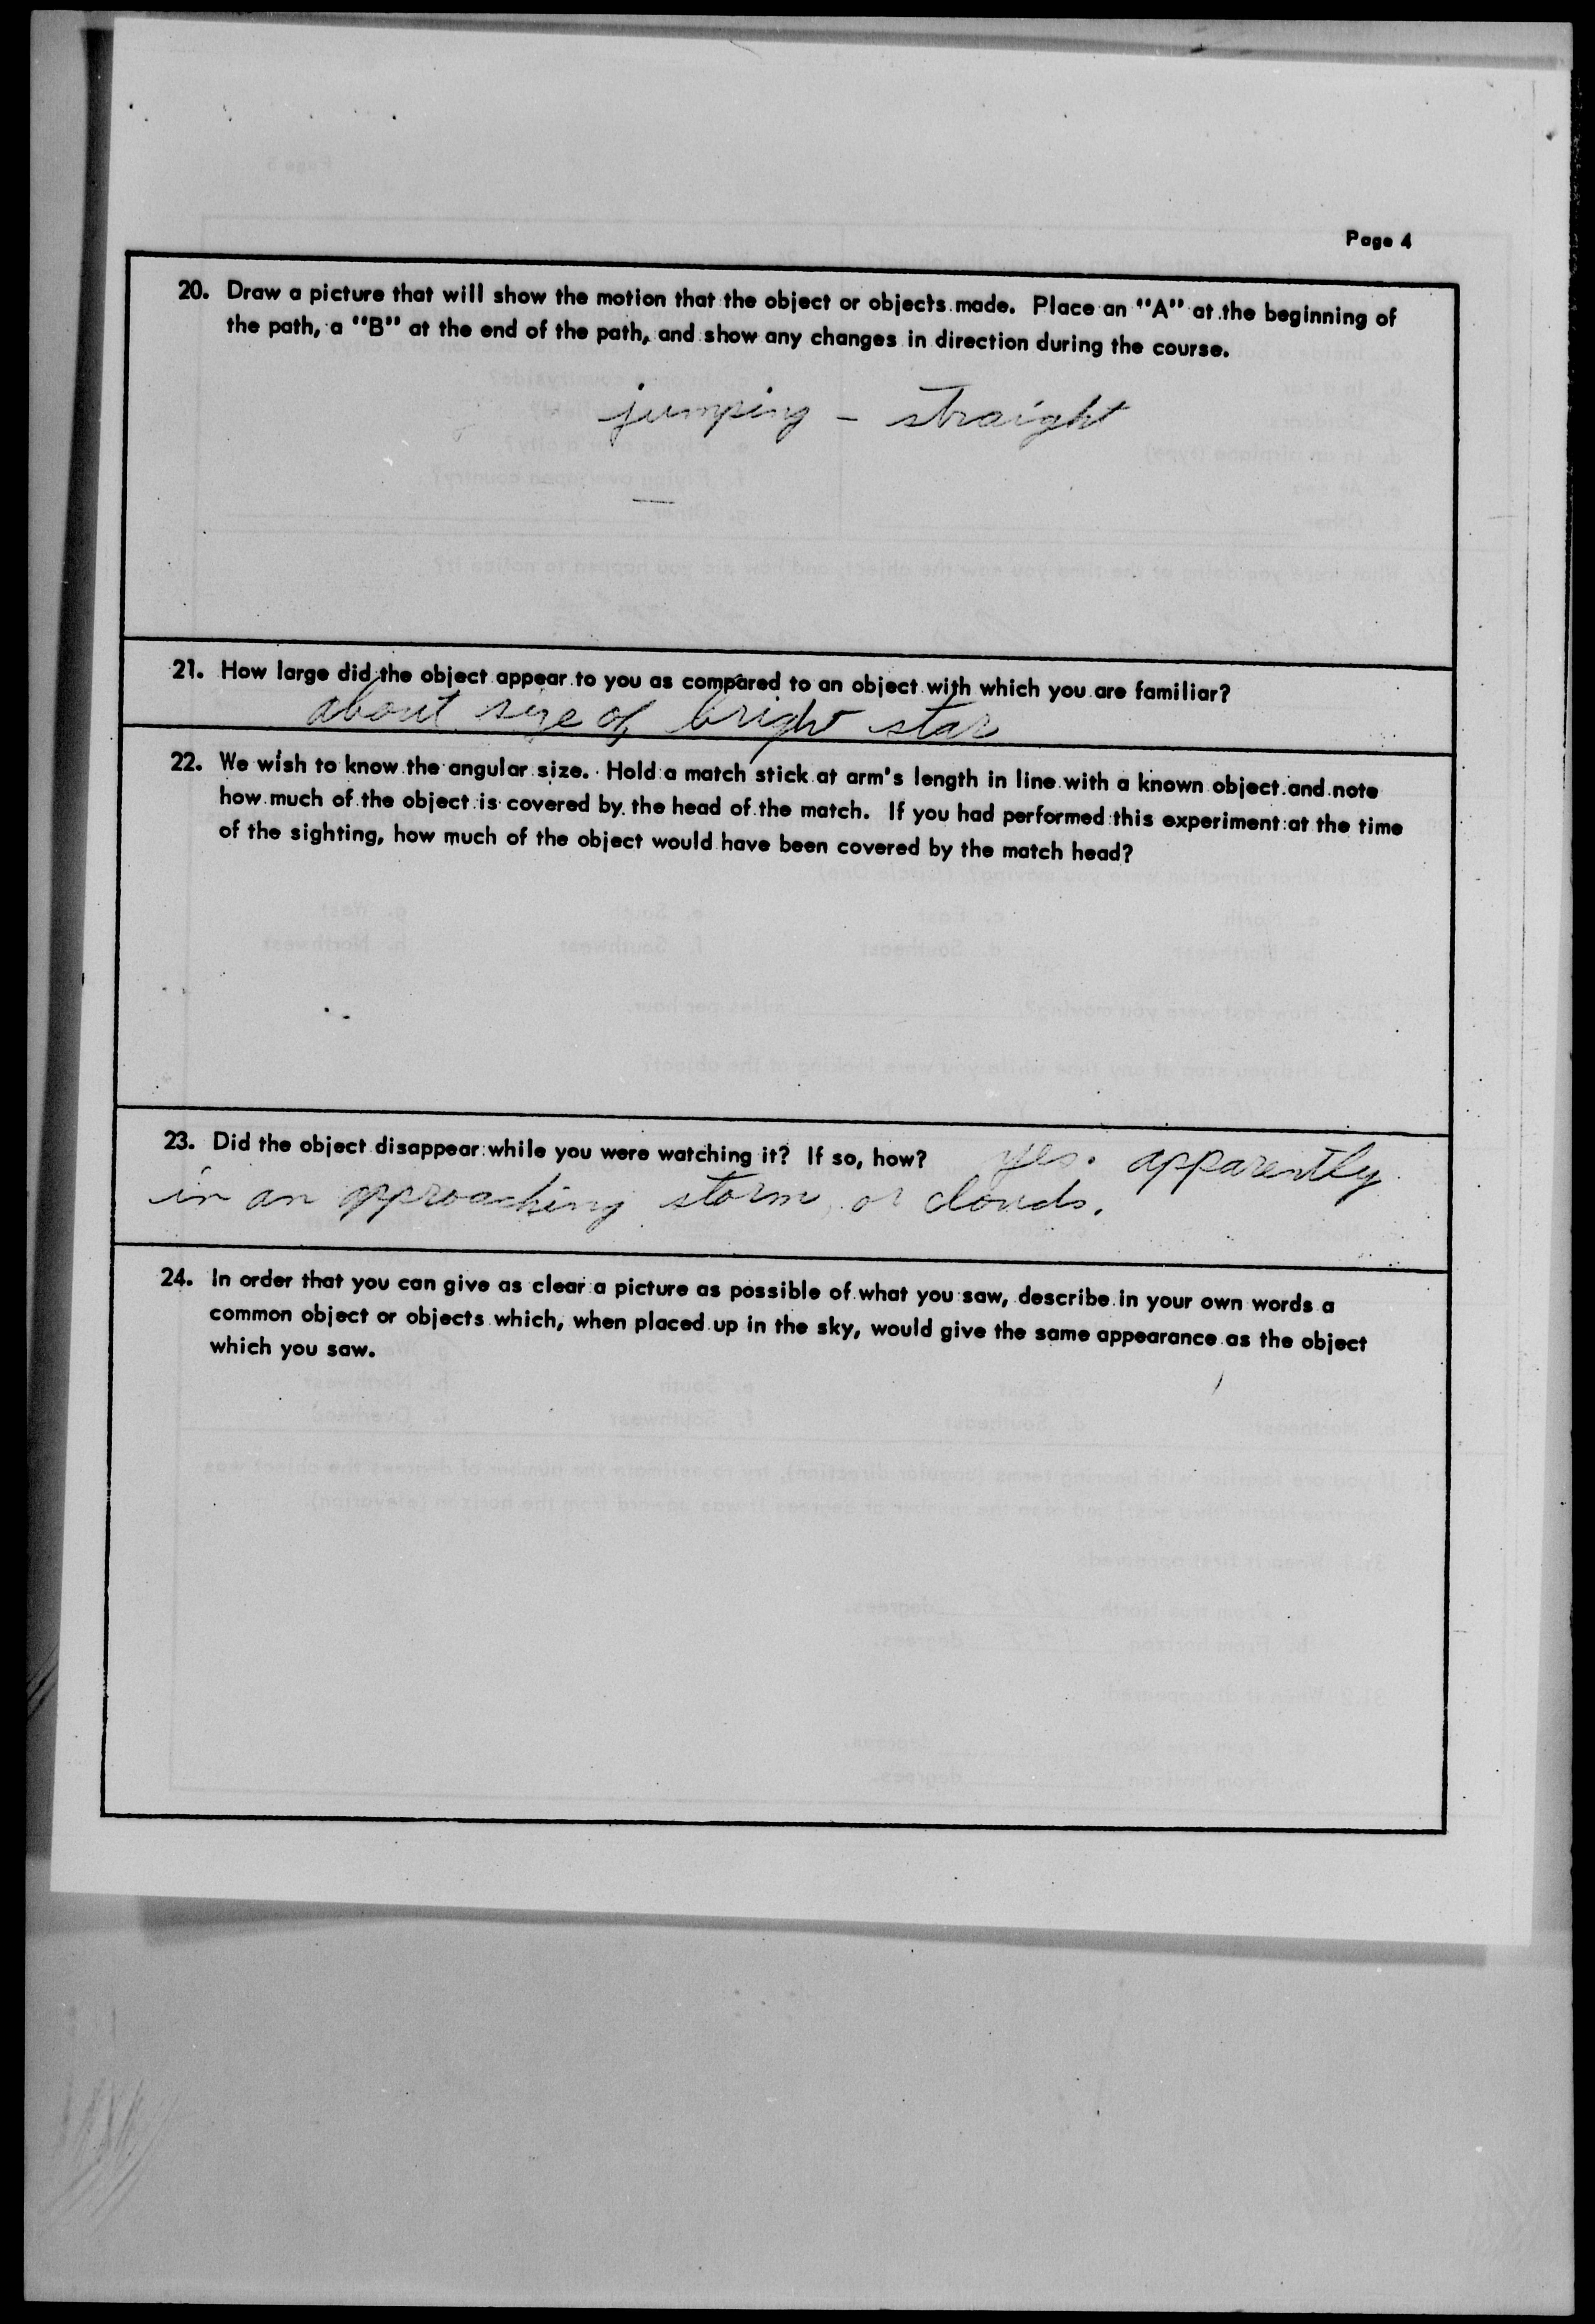 Page 4
20. Draw a picture that will show the motion that the object or objects made. Place an "A" at the beginning of
the path, a "B" at the end of the path, and show any changes in direction during the course.
jumping – straight
21. How large did the object appear to you as compared to an object with which you are familiar?
about size of bright star
22. We wish to know the angular size. Hold a match stick at arm's length in line with a known object and note
how much of the object is covered by the head of the match. If you had performed this experiment at the time
of the sighting, how much of the object would have been covered by the match head?
23. Did the object disappear while you were watching it? If so, how? yes. apparently
in an approaching storm, or clouds.
24. In order that you can give as clear a picture as possible of what you saw, describe in your own words a
common object or objects which, when placed up in the sky, would give the same appearance as the object
which you saw.